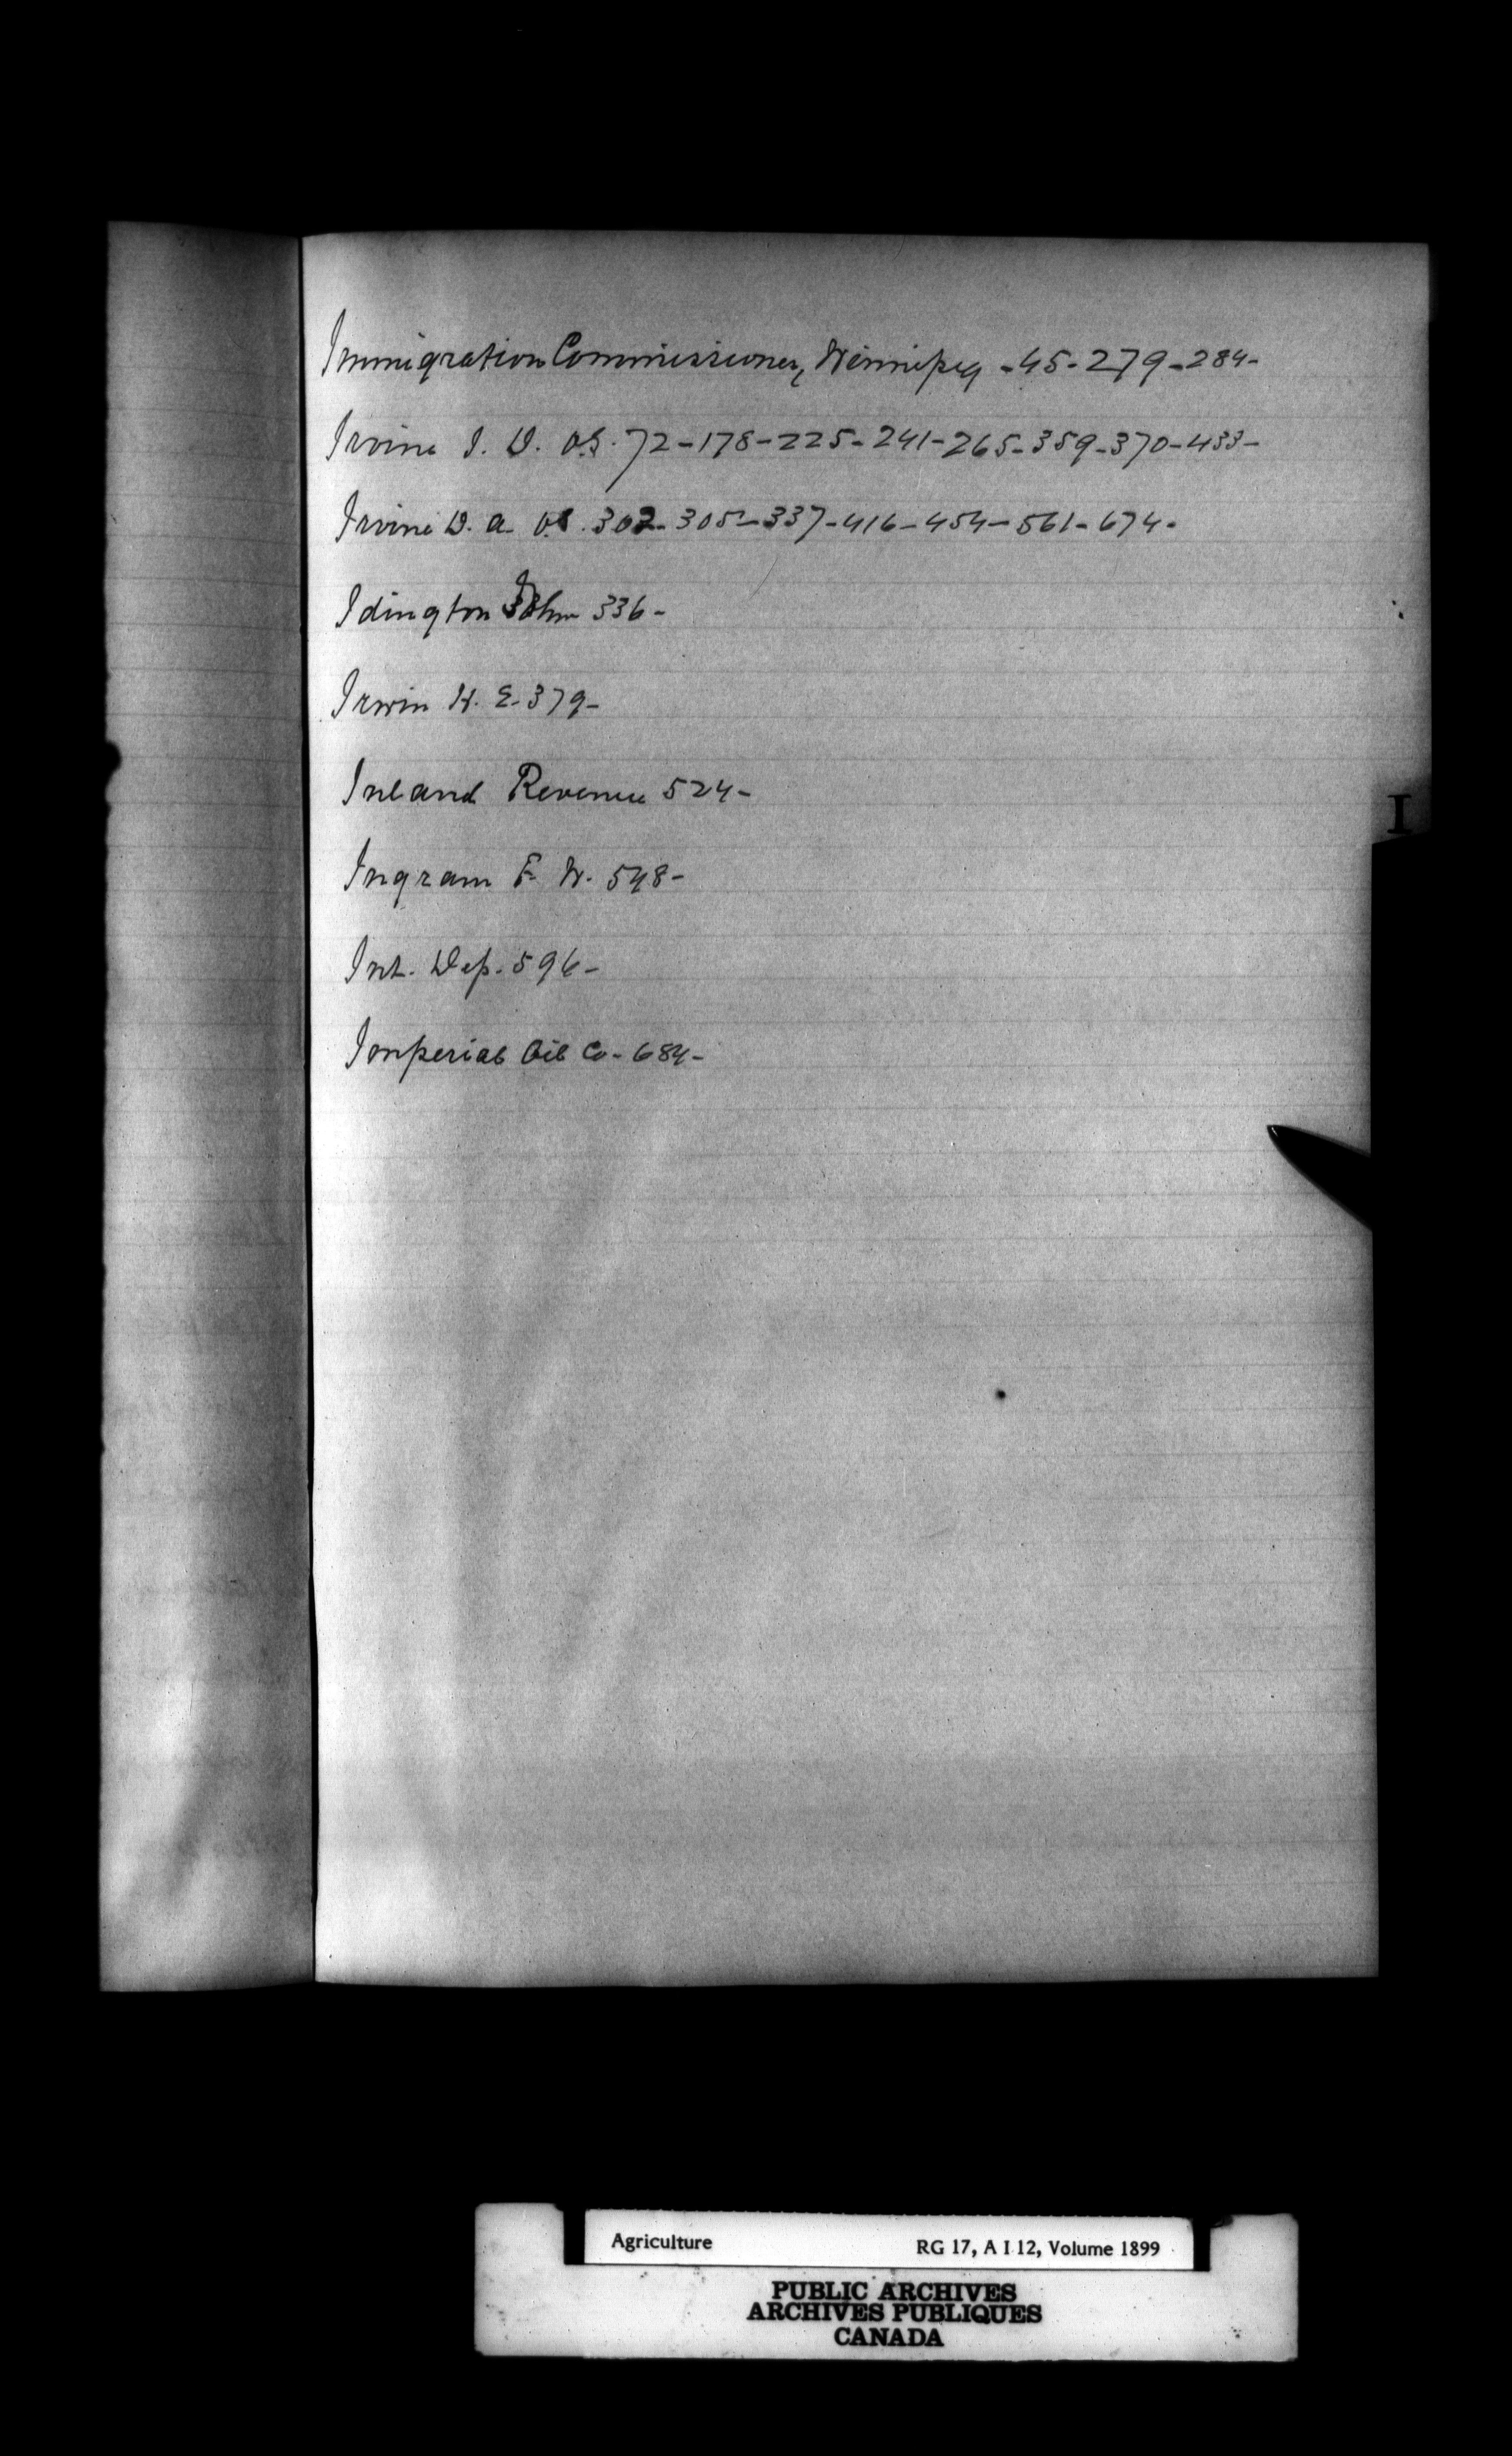 Immigration Commissioner, Winnipeg - 45 - 279 - 284 -
Irvine J. D. V.S. 72 - 178 - 225 - 241 - 265 - 359 - 370 - 433 -
Irvine D. A. V.S. 302 - 305 - 337 - 416 - 454 - 561 - 674 -
Idington John 336 -
Irwin H. E. 379 -
Inland Revenue 524 -
I
Ingram F. W. 548 -
Int. Dep. 596 -
Imperial Oil Co - 684 -
Agriculture RG 17, A I 12, Volume 1899
PUBLIC ARCHIVES
ARCHIVES PUBLIQUES
CANADA